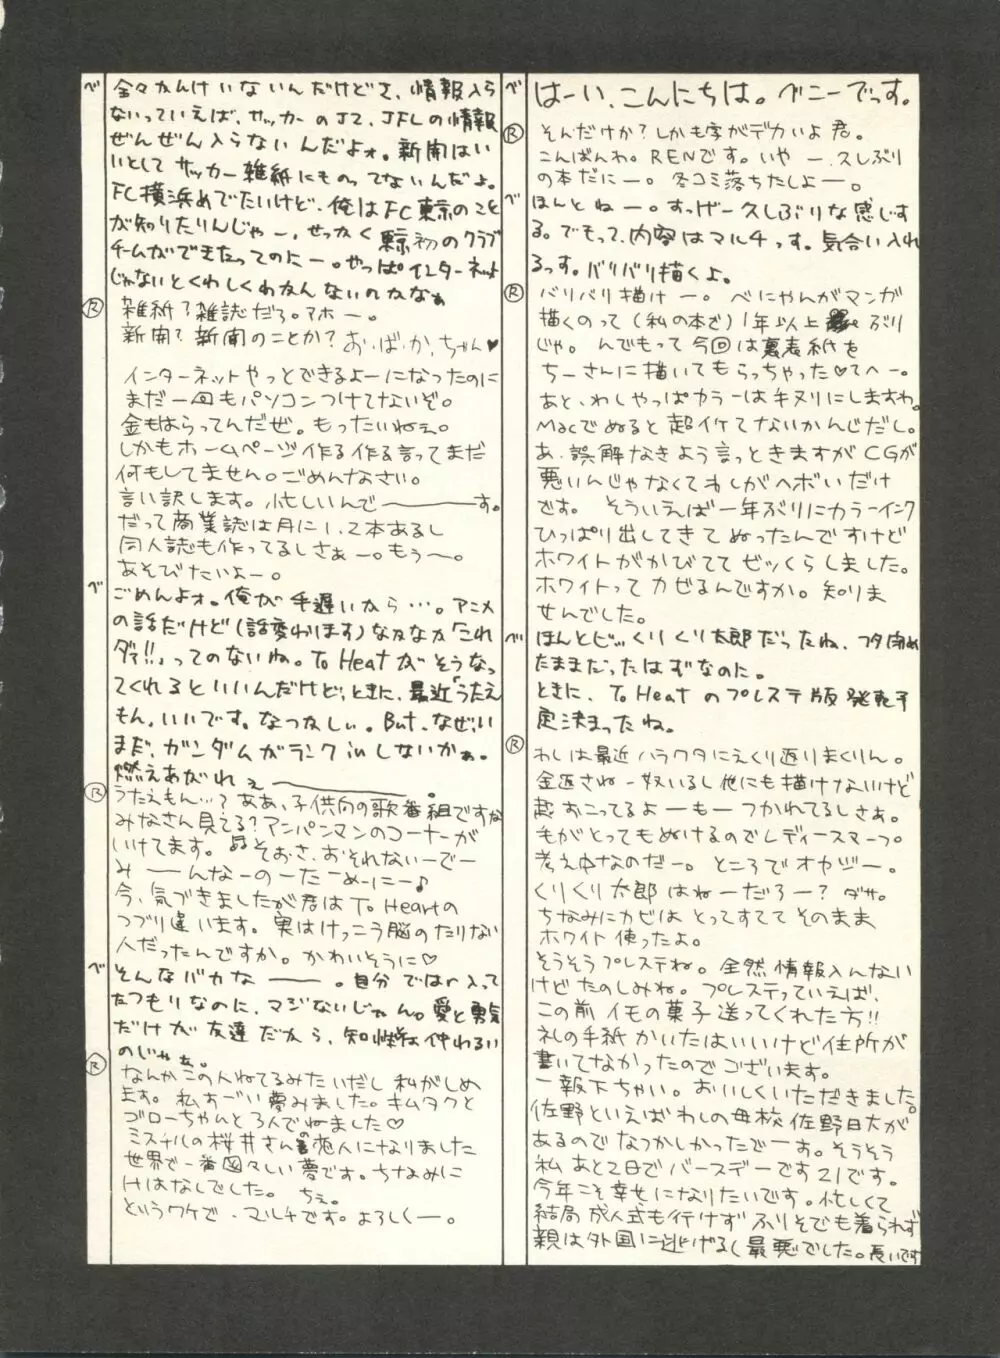 べ はーい、こんにちは。べニーでっす。
R そんだけか?しかも字がデカいよ君。
こんばんわ。RENです。いやー、久しぶり
の本だにー。冬コミ落ちたしよー。
べ ほんとねー。すっげー久しぶりな感じす
る。でもって、内容はマルチっす。気合い入れ
るっす。バリバリ描くよ。
R バリバリ描けー。べにやんがマンガ
描くのって(私の本で)1年以上ぶり
じゃ。んでもって今回は裏表紙を
ちーさんに描いてもらっちゃった♡てへー。
あと、わしやっぱカラーは手ヌリにしますわ。
Macでぬると超イケてないかんじだし。
あ、誤解なきよう言っときますがCGが
悪いんじゃなくてわしがヘボいだけ
です。そういえば一年ぶりにカラーインク
ひっぱり出してきてぬったんですけど
ホワイトがかびててビックらしました。
ホワイトってカビるんですか。知りま
せんでした。
べ ほんとビックリくり太郎だったね、フタ閉め
たままだったはずなのに。
ときに、To Heatのプレステ版発売予
定決まったね。
R わしは最近ハラワタにえくり返りまくりん。
金返さねー奴いるし他にも描けないけど
超おこってるよーもーつかれてるしさぁ。
毛がとってもぬけるのでレディースマープ。
考え中なのだー。ところでオヤジー。
くりくり太郎はねーだろー?ダサ。
ちなみにカビはとってすててそのまま
ホワイト使ったよ。
そうそうプレステね。全然情報入んない
けどたのしみね。プレステっていえば、
この前イモの菓子送ってくれた方!!
礼の手紙かいたはいいけど住所が
書いてなかったのでございます。
一報下ちゃい。おいしくいただきました。
佐野といえばわしの母校佐野日大が
あるのでなつかしかったでーす。そうそう
私あと2日でバースデーです21です。
今年こそ幸せになりたいです。忙しくて
結局成人式も行けずふりそでも着られず
親は外国に逃げるし最悪でした。長いです
べ 全々かんけいないんだけどさ、情報入ら
ないっていえば、サッカーのJ2、JFLの情報
ぜんぜん入らないんだよォ。新開はい
いとしてサッカー雑紙にものってないんだよ。
FC横浜めでたいけど、俺はFC東京のこと
が知りたりんじゃー、せっかく東京初のクラブ
チームができたってのにー。やっぱインターネット
じゃないとくわしくわかんないのかなぁ
R 雑紙?雑誌だろ。アホー。
新開?新聞のことか?おばかちゃん♥
インターネットやっとできるよーになったのに
まだ一回もパソコンつけてないぞ。
金もはらってんだぜ。もったいねえ。
しかもホームページ作る作る言ってまだ
何もしてません。ごめんなさい。
言い訳します。忙しいんで〜す。
だって商業誌は月に1、2本あるし
同人誌も作ってるしさぁー。もう〜。
あそびたいよー。
べ ごめんよォ。俺が手遅いから…。アニメ
の話だけど(話変わります)なかなか「これ
ダァ!!」ってのないね。To Heatがそうなっ
てくれるといいんだけど、ときに、最近「うたえ
もん」いいです。なつかしい。But、なぜ、い
まだ、ガンダムがランクinしないかぁ。
燃えあがれぇ――――。
R うたえもん…?ああ、子供向の歌番組ですな
みなさん見てる?アンパンマンのコーナーが
いけてます。♫そおさ、おそれないーでー
みーんなーのーたーめーにー♪
今、気づきましたが君はTo Heartの
つづり違います。実はけっこう脳のたりない
人だったんですか。かわいそうに♡
べ そんなバカなー。自分ではr入って
たつもりなのに、マジないじゃん。愛と勇気
だけが友達だから、知性は仲わるい
のじゃぁ。
R なんかこの人ねてるみたいだし私がしめ
ます。私すごい夢みました。キムタクと
ゴローちゃんと3人でねました♡
ミスチルの桜井さんの恋人になりました
世界で一番図々しい夢です。ちなみに
Hはなしでした。ちぇ。
というワケで、マルチです。よろしくー。